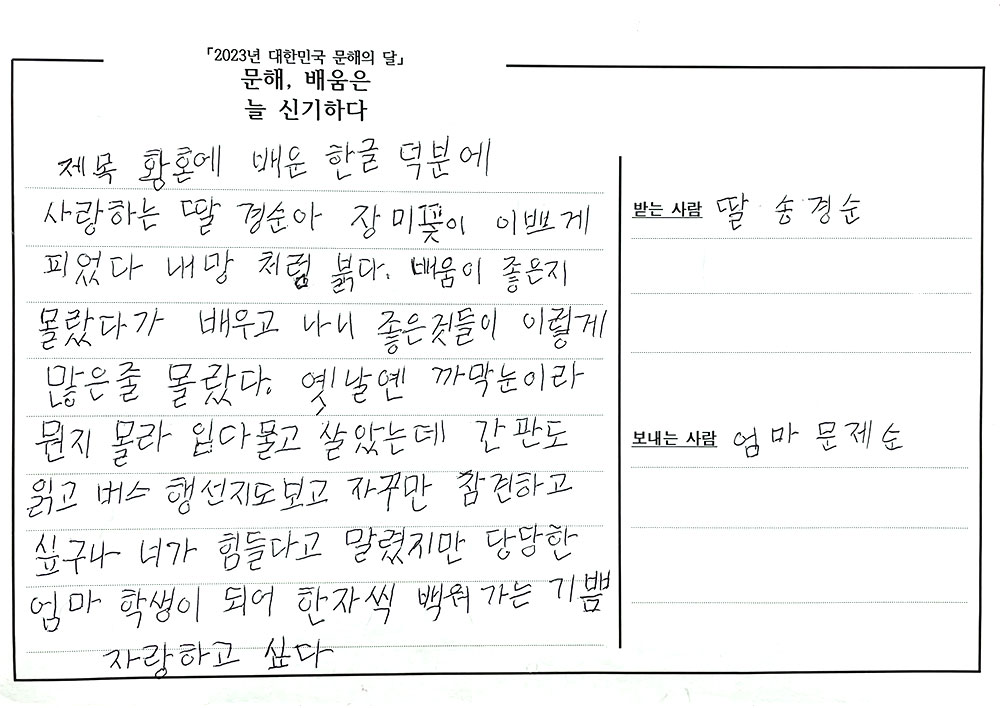 「2023년 대한민국 문해의 달」
문해, 배움은
늘 신기하다
제목 황혼에 배운 한글 덕분에
사랑하는 딸 경순아 장미꽃이 이쁘게
피었다 내망 처럼 붉다. 배움이 좋은지
몰랐다가 배우고 나니 좋은것들이 이렇게
많은줄 몰랐다. 옛날옌 까막눈이라
뭔지 몰라 입다물고 살았는데 간판도
읽고 버스 행선지도보고 자꾸만 참견하고
싶구나 너가 힘들다고 말렸지만 당당한
엄마 학생이 되어 한자씩 백워가는 기쁨
자랑하고 싶다
받는 사람 딸 송경순
보내는 사람 엄마 문제순